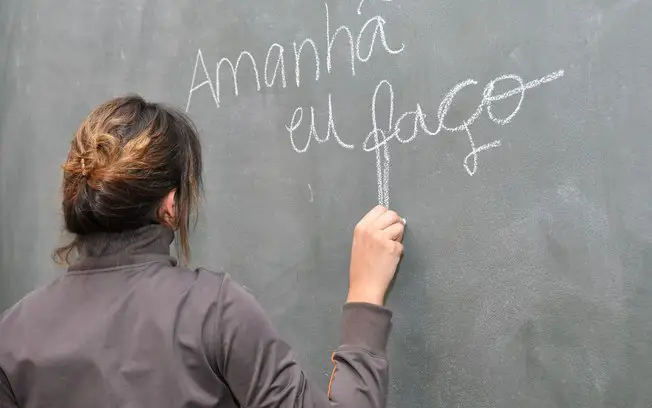 Amanhã
eu faço